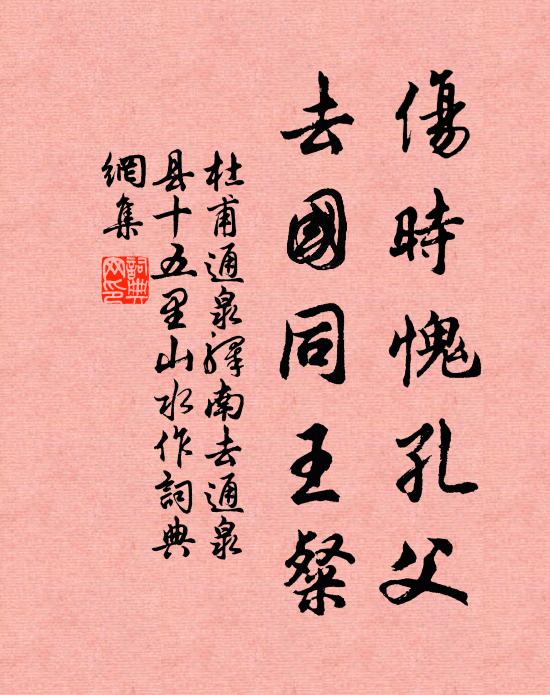 傷時愧孔父
去國同王粲
杜甫通泉驛南去通泉
县十五里山水作詞典
網集
詞典網印